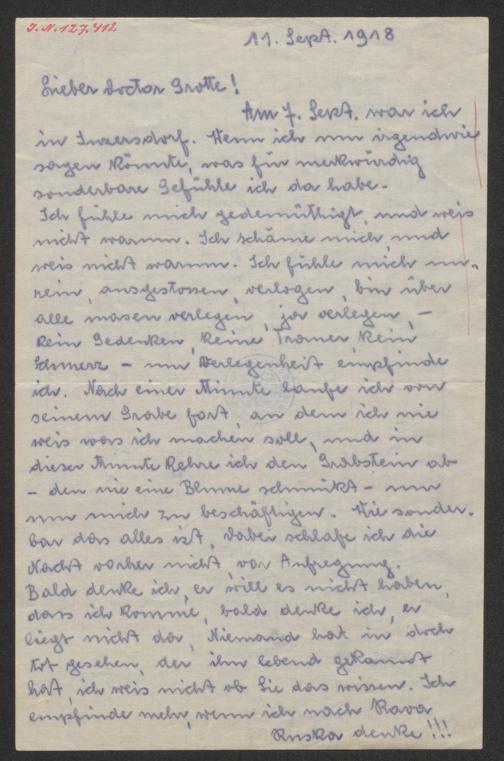 I.N. 127.412
11. Sept. 1918
Lieber Doctor Grotte!
Am 7. Sept. war ich
in Inzersdorf. Wenn ich nun irgendwie
sagen könnte, was für merkwürdig
sonderbare Gefühle ich da habe.
Ich fühle mich gedemüthigt, und weis
nicht warum. Ich schäme mich, und
weis nicht warum. Ich fühle mich un-
rein, ausgestossen, verlogen, bin über
alle masen verlegen, ja verlegen, –
kein Gedenken, keine Trauer kein
Schmerz – nur Verlegenheit empfinde
ich. Nach einer Minute laufe ich von
seinem Grabe fort, an dem ich nie
weis was ich machen soll, und in
dieser Minute kehre ich den Grabstein ab
– den nie eine Blume schmükt – nur
um mich zu beschäftigen. Wie sonder-
bar das alles ist, dabei schlafe ich die
Nacht vorher nicht, vor Aufregung.
Bald denke ich, er will es nicht haben,
dass ich komme, bald denke ich, er
liegt nicht da, Niemand hat in doch
tot gesehen, der ihn lebend gekannt
hat, ich weis nicht ob Sie das wissen. Ich
empfinde mehr, wenn ich nach Rava
Ruska denke!!!